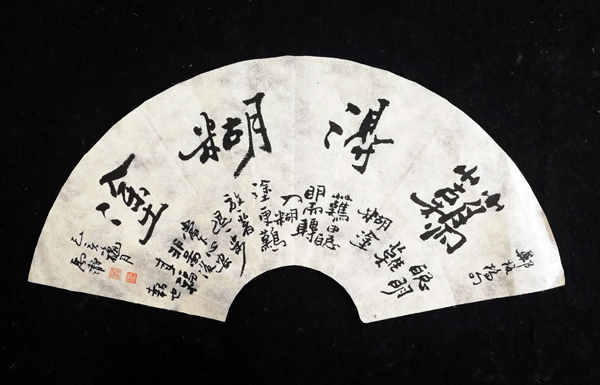 鄭板橋句
難得糊塗
聰明
難
糊塗
難由聰
明而轉
入糊
塗更難
放一著
退一步
當下心安
非圖後
來福
報也
己亥
月